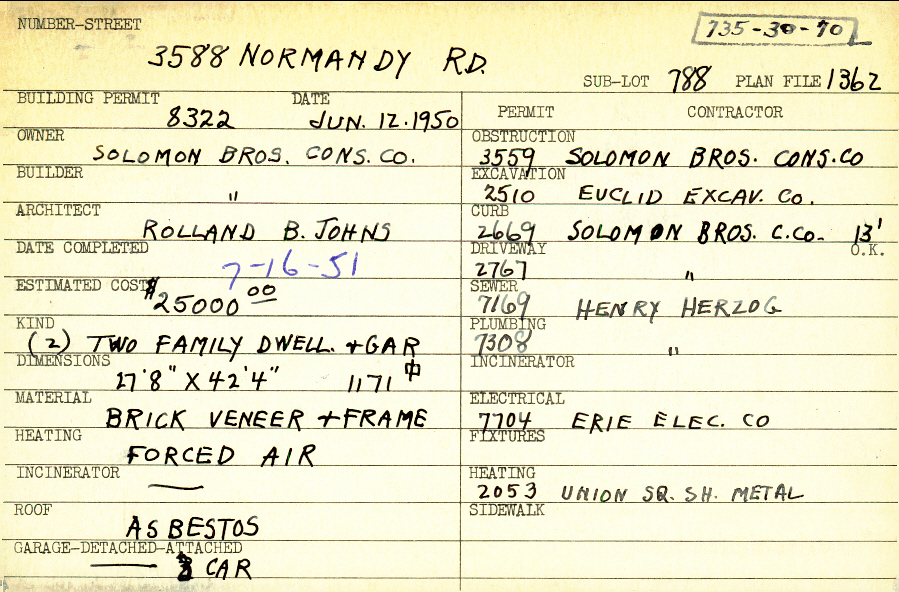 NUMBER-STREET
735-30-70
3588 NORMANDY RD.
SUB-LOT 788 PLAN FILE 1362
BUILDING PERMIT DATE
8322 JUN. 12. 1950
OWNER
SOLOMON BROS. CONS. CO.
BUILDER
"
ARCHITECT
ROLLAND B. JOHNS
DATE COMPLETED
7-16-51
ESTIMATED COST
$25000 00
KIND
(2) TWO FAMILY DWELL. + GAR
DIMENSIONS
27'8" X 42'4" 1171
MATERIAL
BRICK VENEER + FRAME
HEATING
FORCED AIR
INCINERATOR
—
ROOF
ASBESTOS
GARAGE-DETACHED-ATTACHED
— CAR
PERMIT CONTRACTOR
OBSTRUCTION
3559 SOLOMON BROS. CONS. CO
EXCAVATION
2510 EUCLID EXCAV. CO.
CURB
2669 SOLOMON BROS. C. CO. 13'
O.K.
DRIVEWAY
2767 "
SEWER
7169 HENRY HERZOG
PLUMBING
7308 "
INCINERATOR
ELECTRICAL
7704 ERIE ELEC. CO
FIXTURES
HEATING
2053 UNION SQ. SH. METAL
SIDEWALK